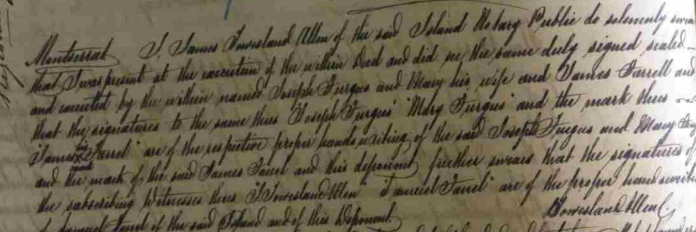 Montserrat I, James Townsland Allen of the said Island Notary Public do solemnly swear
that I was present at the execution of the within Deed and did see the same duly signed sealed
and executed by the within named Joseph Furgus and Mary his wife and James Farrell and
that the signatures to the same thus "Joseph Furgus" "Mary Furgus" and the mark thus
"James Farrel" are of the respective proper hands writing of the said Joseph Furgus and Mary
and the mark of the said James Farrel and this deponent further swears that the signatures of
the subscribing Witnesses thus "J Townsland Allen" "Samuel Farrel" are of the proper hand
Samuel Farrel of the said Island and of this Deponent Townsland Allen